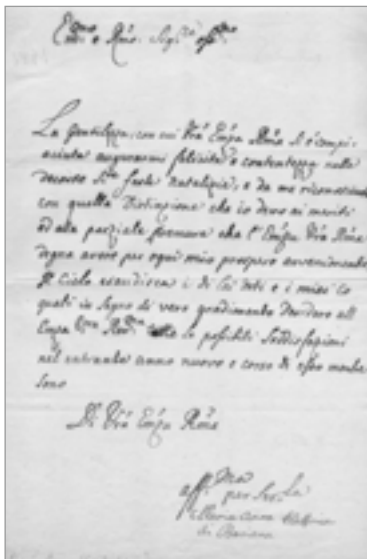 Em.mo e Rmo. Sig.re oss.mo
La Gentilezza, con cui Vrã Emza Rma si è compi-
aciuta augurarmi felicità e contentezza nelle
decorse S.me feste natalizie, è da me riconosciuta
con quella distinzione che io devo ai meriti
ed alla parziale premura che l' Emza Vrã Rma
degna avere per ogni mio prospero avvenimento
Il Cielo esaudisca i di Lei voti e i miei co
quali in segno di vero gradimento desidero all
Emza Rev.ma le possibili soddisfazioni
nel entrante anno nuovo e corso di esso mentre
sono
Di Vrã Emza Rma
aff.ma
per ser.la
Maria Anna
di Baviera